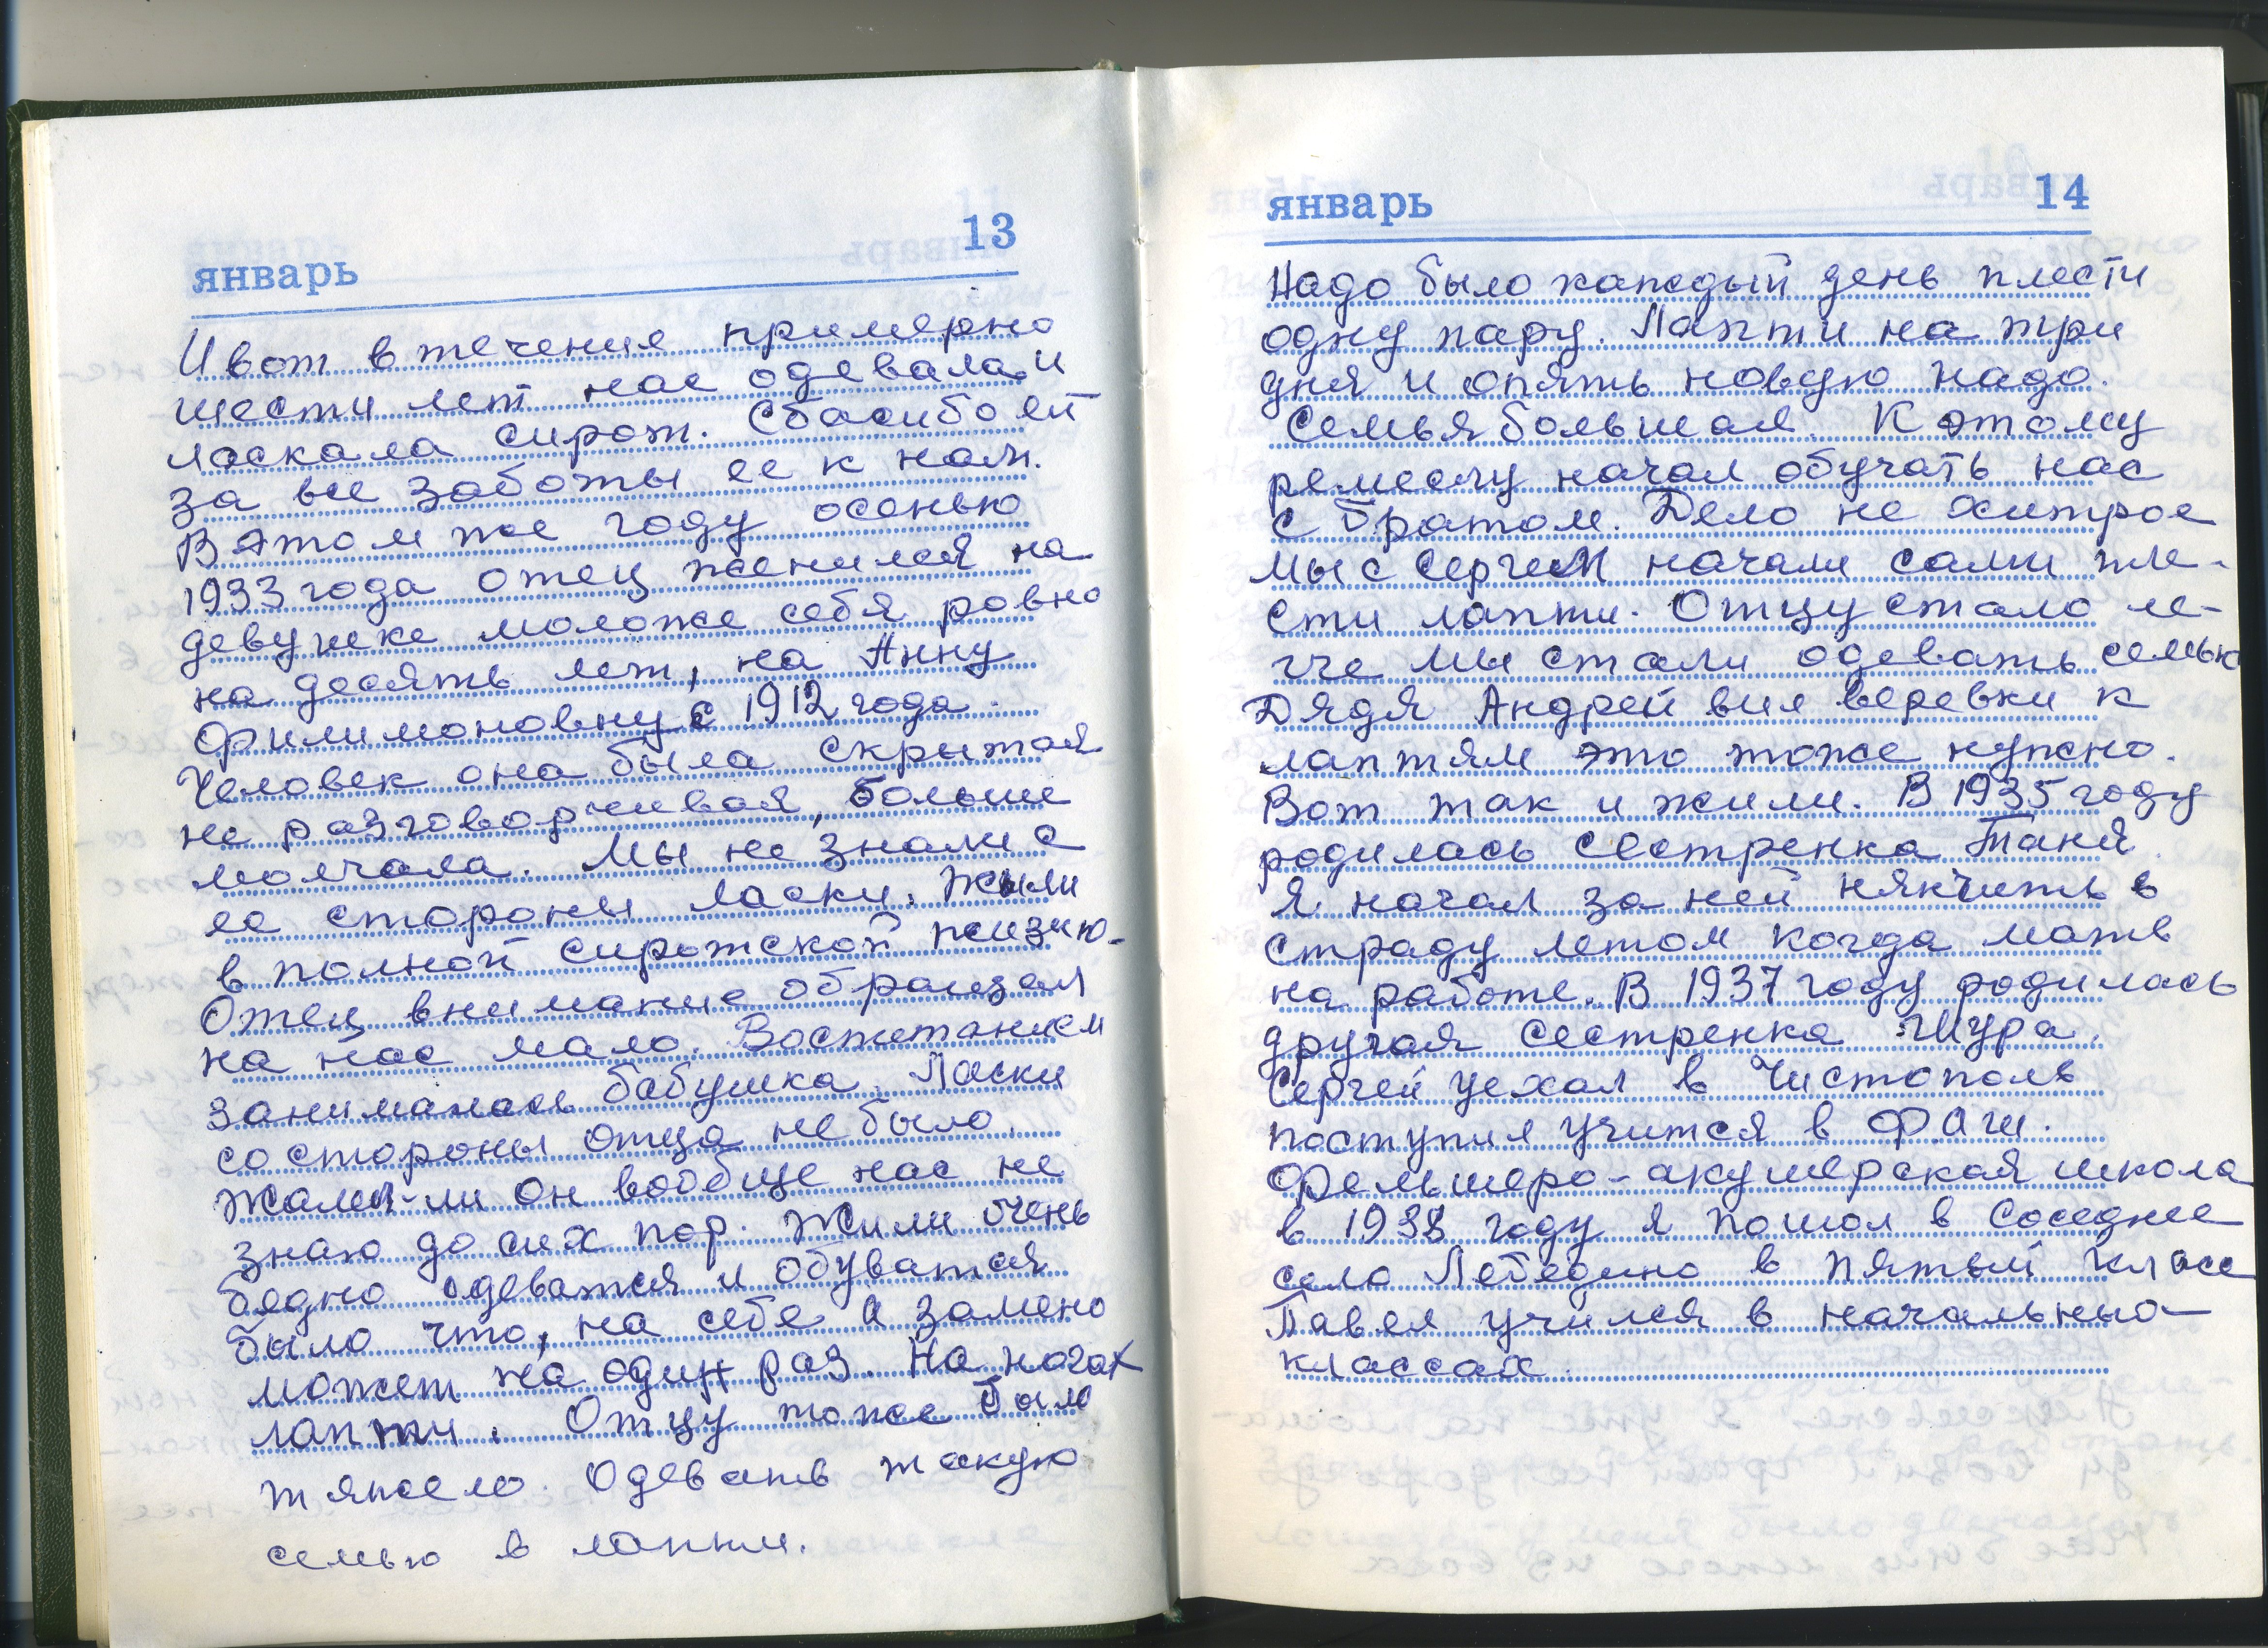 январь 13
И вот в течение примерно
шести лет нас одевала и
ласкала сирот. Сбасибо ей
за все заботы ее к нам.
В этом же году осенью
1933 года отец женился на
девушке моложе себя ровно
на десять лет, на Анну
Филимоновну с 1912 года.
Человек она была скрытая
не разговорчивая, больше
молчала. Мы не знали с
ее стороны ласки. Жили
в полной сиротской жизню.
Отец внимание обращал
на нас мало. Воспитанием
занималась бабушка. Ласки
со стороны отца не было.
Жалел-ли он вообще нас не
знаю до сих пор. Жили очень
бедно одеватся и обуватся
было что, на себе а замено
может на один раз. На ногах
лапти. Отцу тоже было
тяжело. Одевать такую
семью в лапти.
январь 14
Надо было каждый день плести
одну пару. Лапти на три
дня и опять новую надо.
Семья большая. К этому
ремеслу начал обучать нас
с братом. Дело не хитрое
мы с Сергеем начали сами пле-
сти лапти. Отцу стало ле-
гче мы стали одевать семью
Дядя Андрей вил веревки к
лаптям это тоже нужно.
Вот так и жили. В 1935 году
родилась сестренка Таня.
Я начал за ней нянчить в
страду летом когда мать
на работе. В 1937 году родилась
другая сестренка Шура.
Сергей уехал в Чистополь
поступил учится в ФАШ.
Фельшеро-акушерская школа
в 1938 году я пошол в соседнее
село Лебедино в пятый класс
Павел учился в начальных
классах.